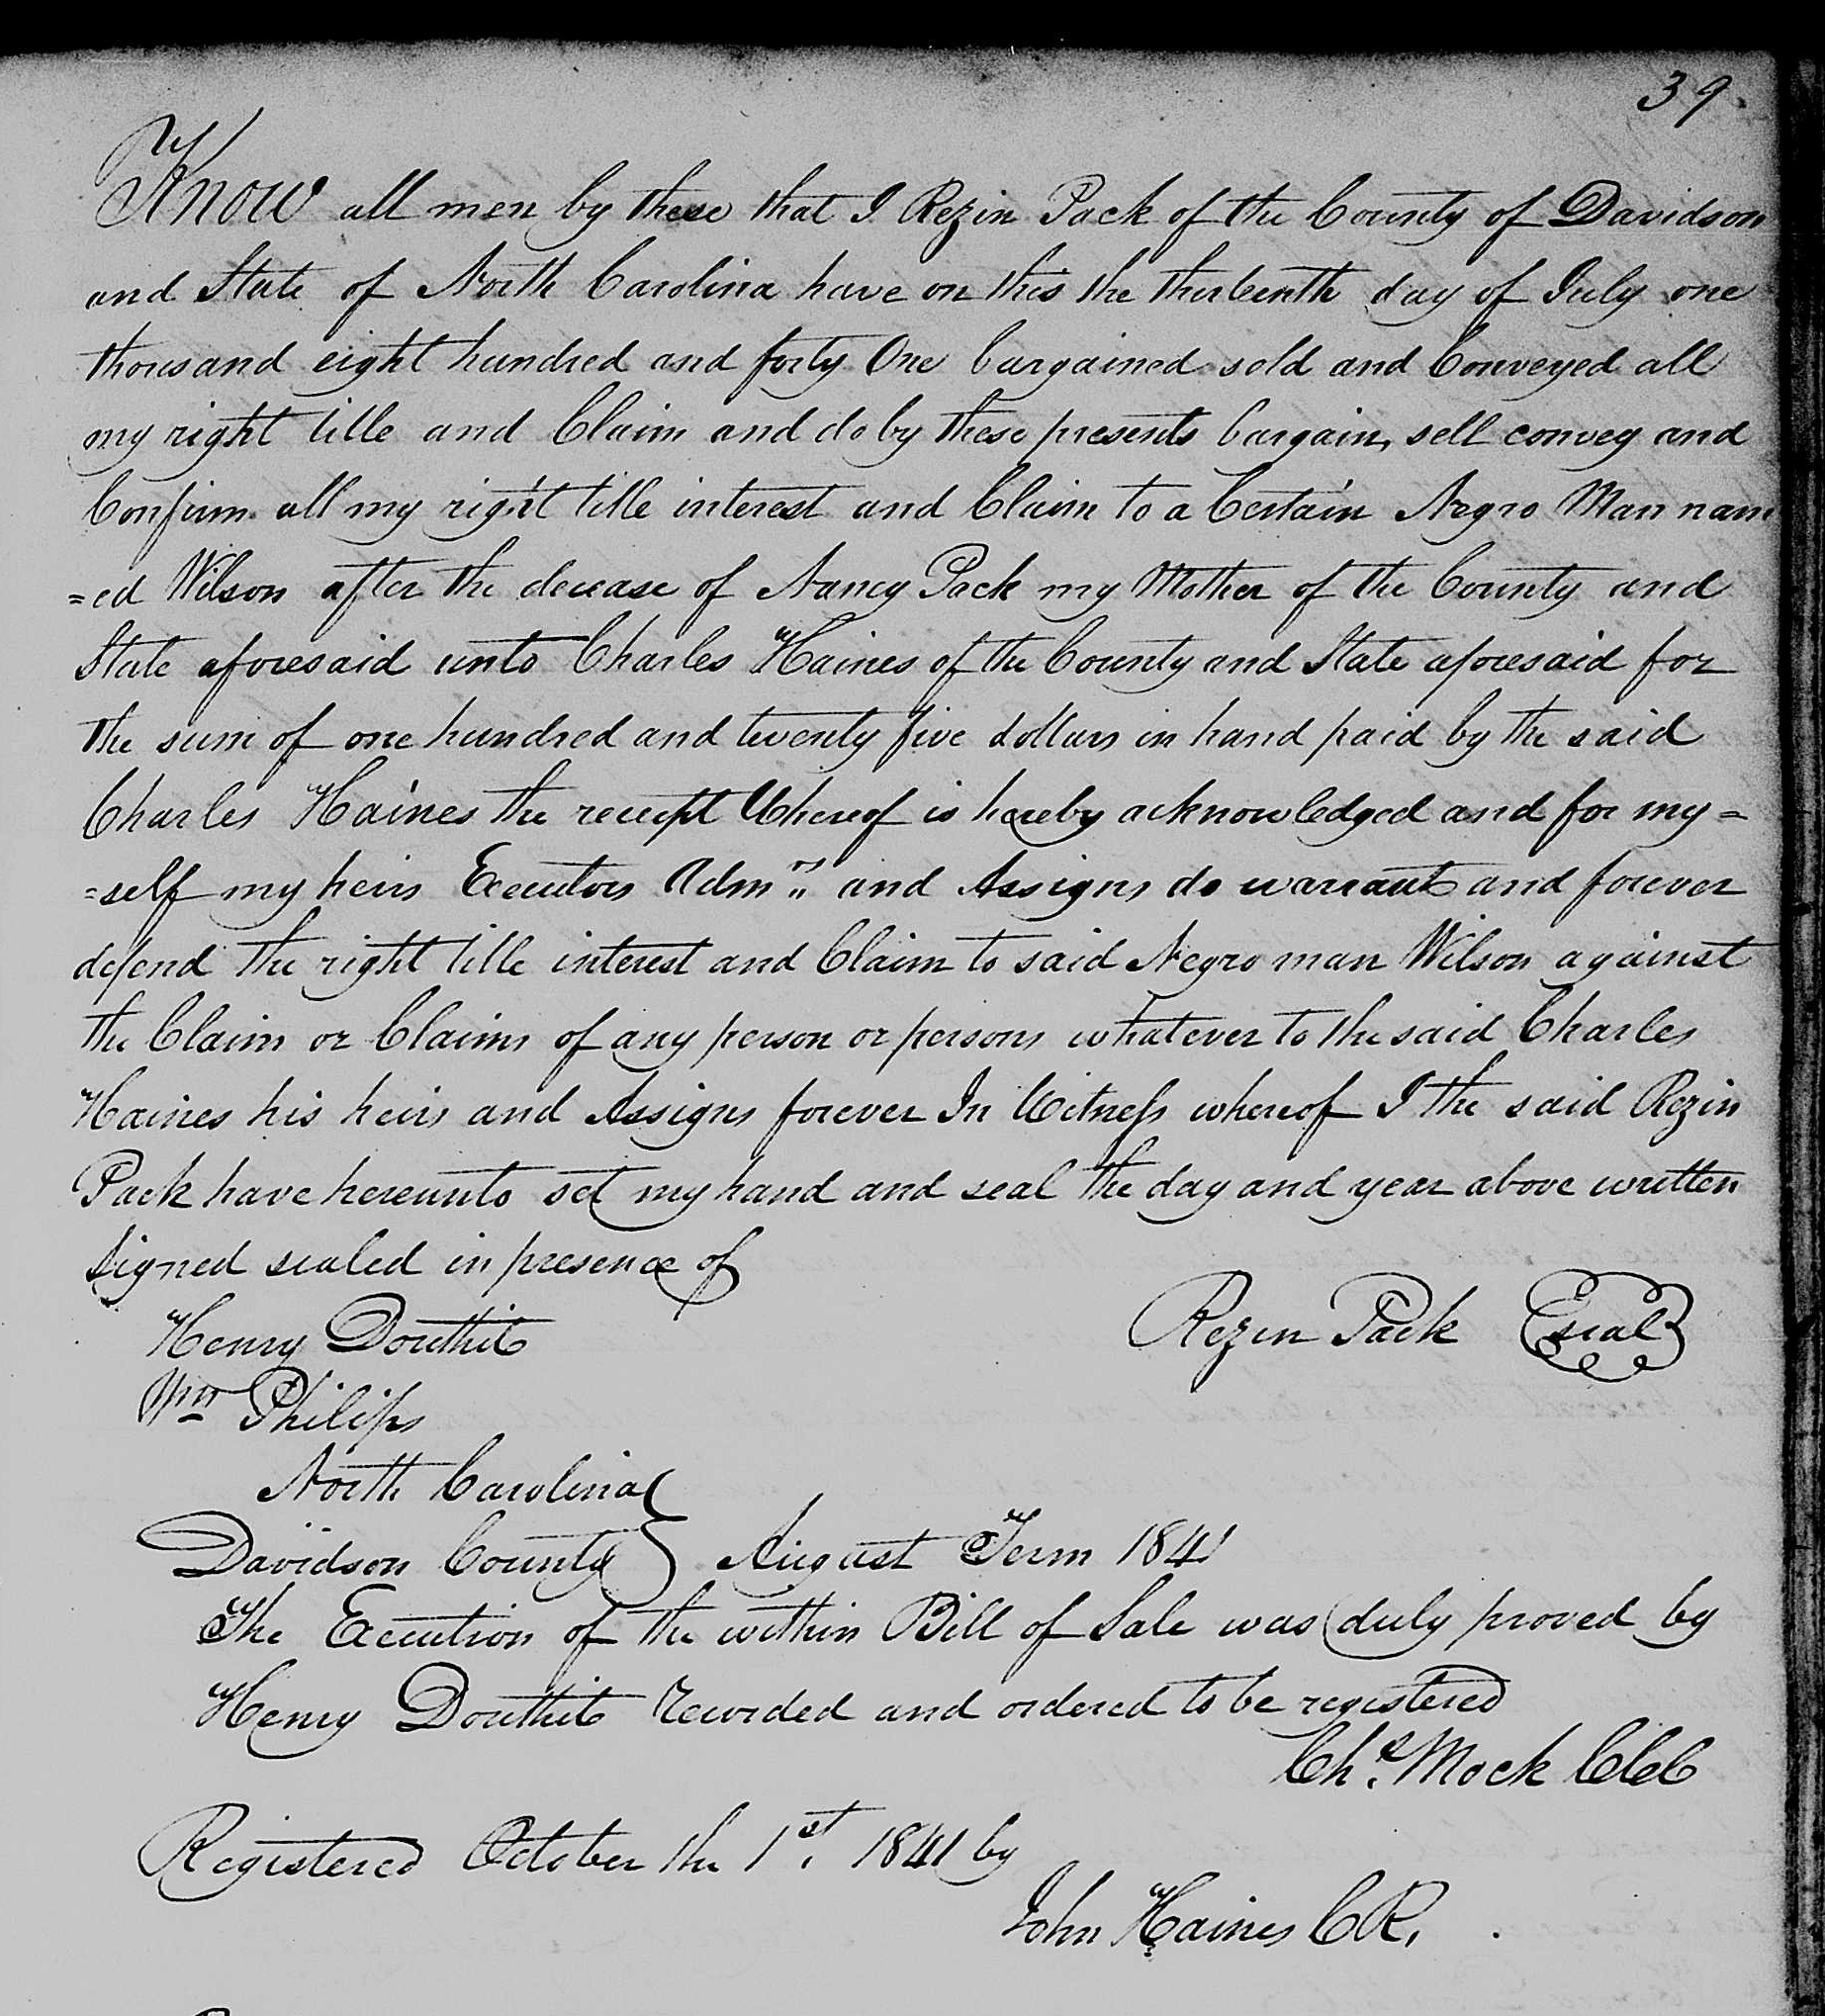 39.
Know all men by these that I Rezin Pack of the County of Davidson
and State of North Carolina have on this the thirteenth day of July one
thousand eight hundred and forty One bargained sold and Conveyed all
my right title and Claim and do by these presents bargain, sell convey and
Confirm all my right title interest and Claim to a Certain Negro Man nam
=ed Wilson after the decease of Nancy Pack my Mother of the County and
State aforesaid unto Charles Haines of the County and State aforesaid for
the sum of one hundred and twenty five dollars in hand paid by the said
Charles Haines the receipt Whereof is hereby acknowledged and for my=
=self my heirs Executors Admrs and Assigns do warrant and forever
defend the right title interest and Claim to said Negro man Wilson against
the Claim or Claims of any person or persons whatever to the said Charles
Haines his heirs and Assigns forever In Witness whereof I the said Rezin
Pack have hereunto set my hand and seal the day and year above written
Signed sealed in presence of
Henry Douthit Rezin Pack seal
Wm Philips
North Carolina
Davidson County August Term 1841
The Execution of the within Bill of Sale was duly proved by
Henry Douthit Recorded and ordered to be registered
Chs. Mock ClC
Registered October the 1st. 1841 by
John Haines C R.